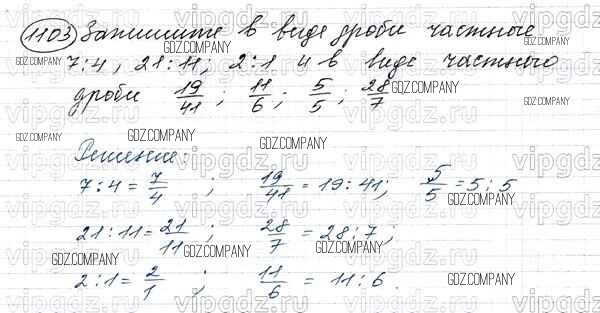 1103 Запишите в виде дроби частные
7:4, 21:11; 2:1 и в виде частного
дроби 19/41; 11/6; 5/5; 28/7
Решение:
7:4 = 7/4; 19/41 = 19:41; 5/5 = 5:5
21:11 = 21/11 28/7 = 28:7;
2:1 = 2/1; 11/6 = 11:6.
GDZ.COMPANY
vipgdz.ru